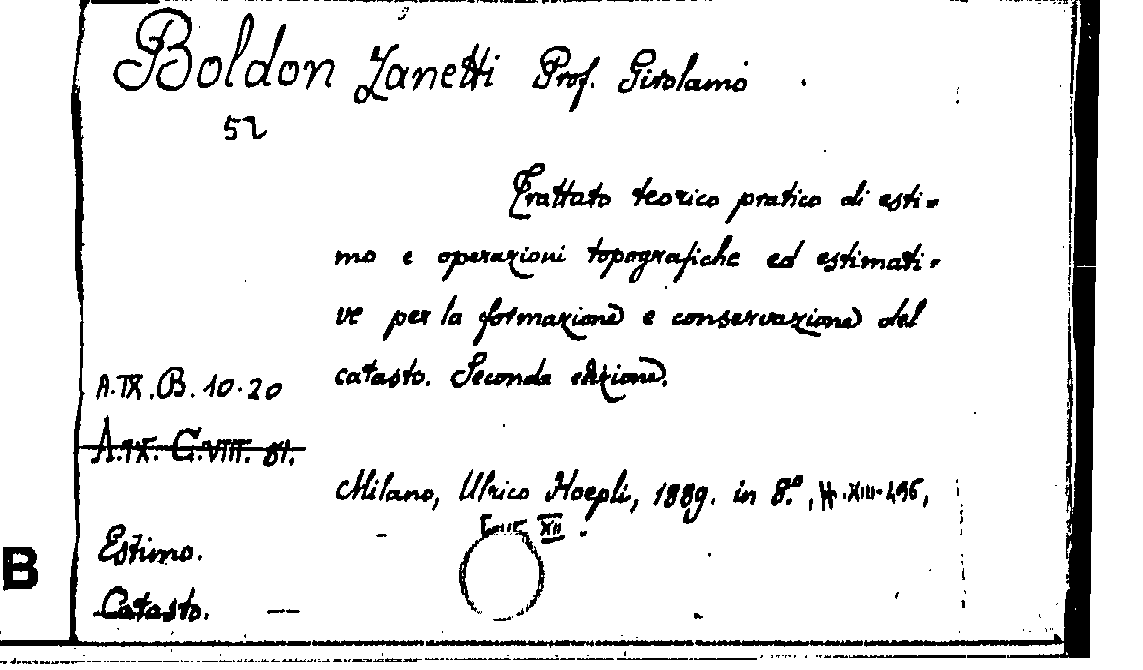 Boldon Zanetti Prof. Girolamo
52
Trattato teorico pratico di esti=
mo e operazioni topografiche ed estimati=
ve per la formazione e conservazione del
catasto. Seconda edizione.
A.IX.B.10-20
A.IX. C.VIII. 81.
Milano, Ulrico Hoepli, 1889. in 8.°, XIII-496,
XII.
Estimo.
B
Catasto.